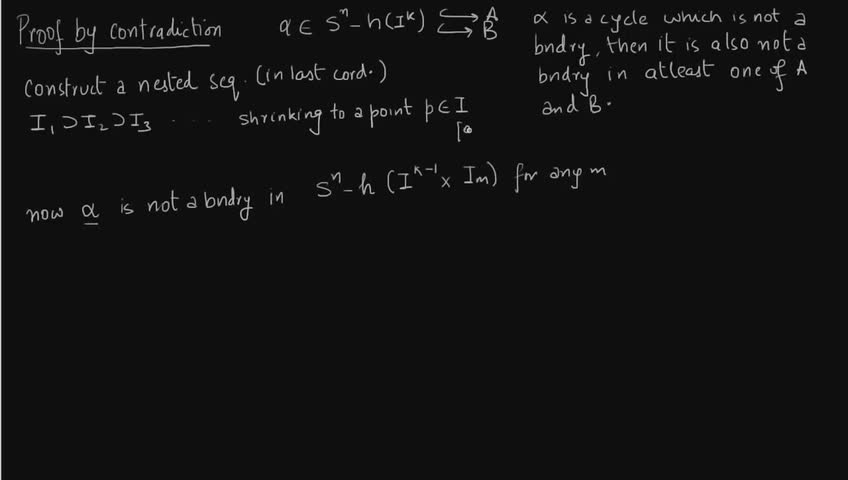 Proof by contradiction α ∈ Sⁿ – h(Iᵏ) ↪ A
↪ B
α is a cycle which is not a
bndry, then it is also not a
bndry in atleast one of A
and B.
Construct a nested seq. (in last cord.)
I₁ ⊃ I₂ ⊃ I₃ ..... shrinking to a point p ∈ I
now α is not a bndry in Sⁿ – h (Iᵏ⁻¹ × Iₘ) for any m